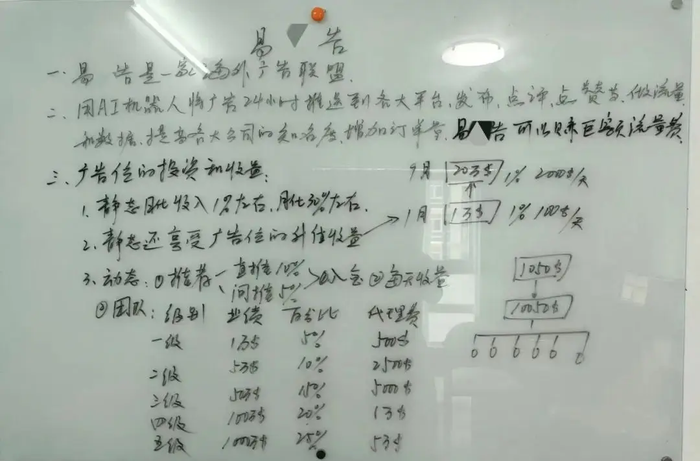 易 告
一、易 告是一家海外广告联盟.
二、用AI机器人将广告24小时推送到各大平台、发布、点评、点赞等、做流量
和数据、提高各大公司的知名度、增加订单量、易 告可以赚巨额流量费
三、广告位的投资和收益:
1、静态日化收入1%左右、月化30%左右、
2、静态还享受广告位的升值收益
3、动态:①推荐 直推10% 间推5% 入金 ②每天收益
②团队:级别 业绩 百分比 代理费
一级 1万$ 5% 500$
二级 5万$ 10% 2500$
三级 50万$ 15% 5000$
四级 100万$ 20% 1万$
五级 1000万$ 25% 5万$
20万$ 1% 2000$/天
1月 1万$ 1% 100$/天
1050$
10050$
0 0 0 0 0 0